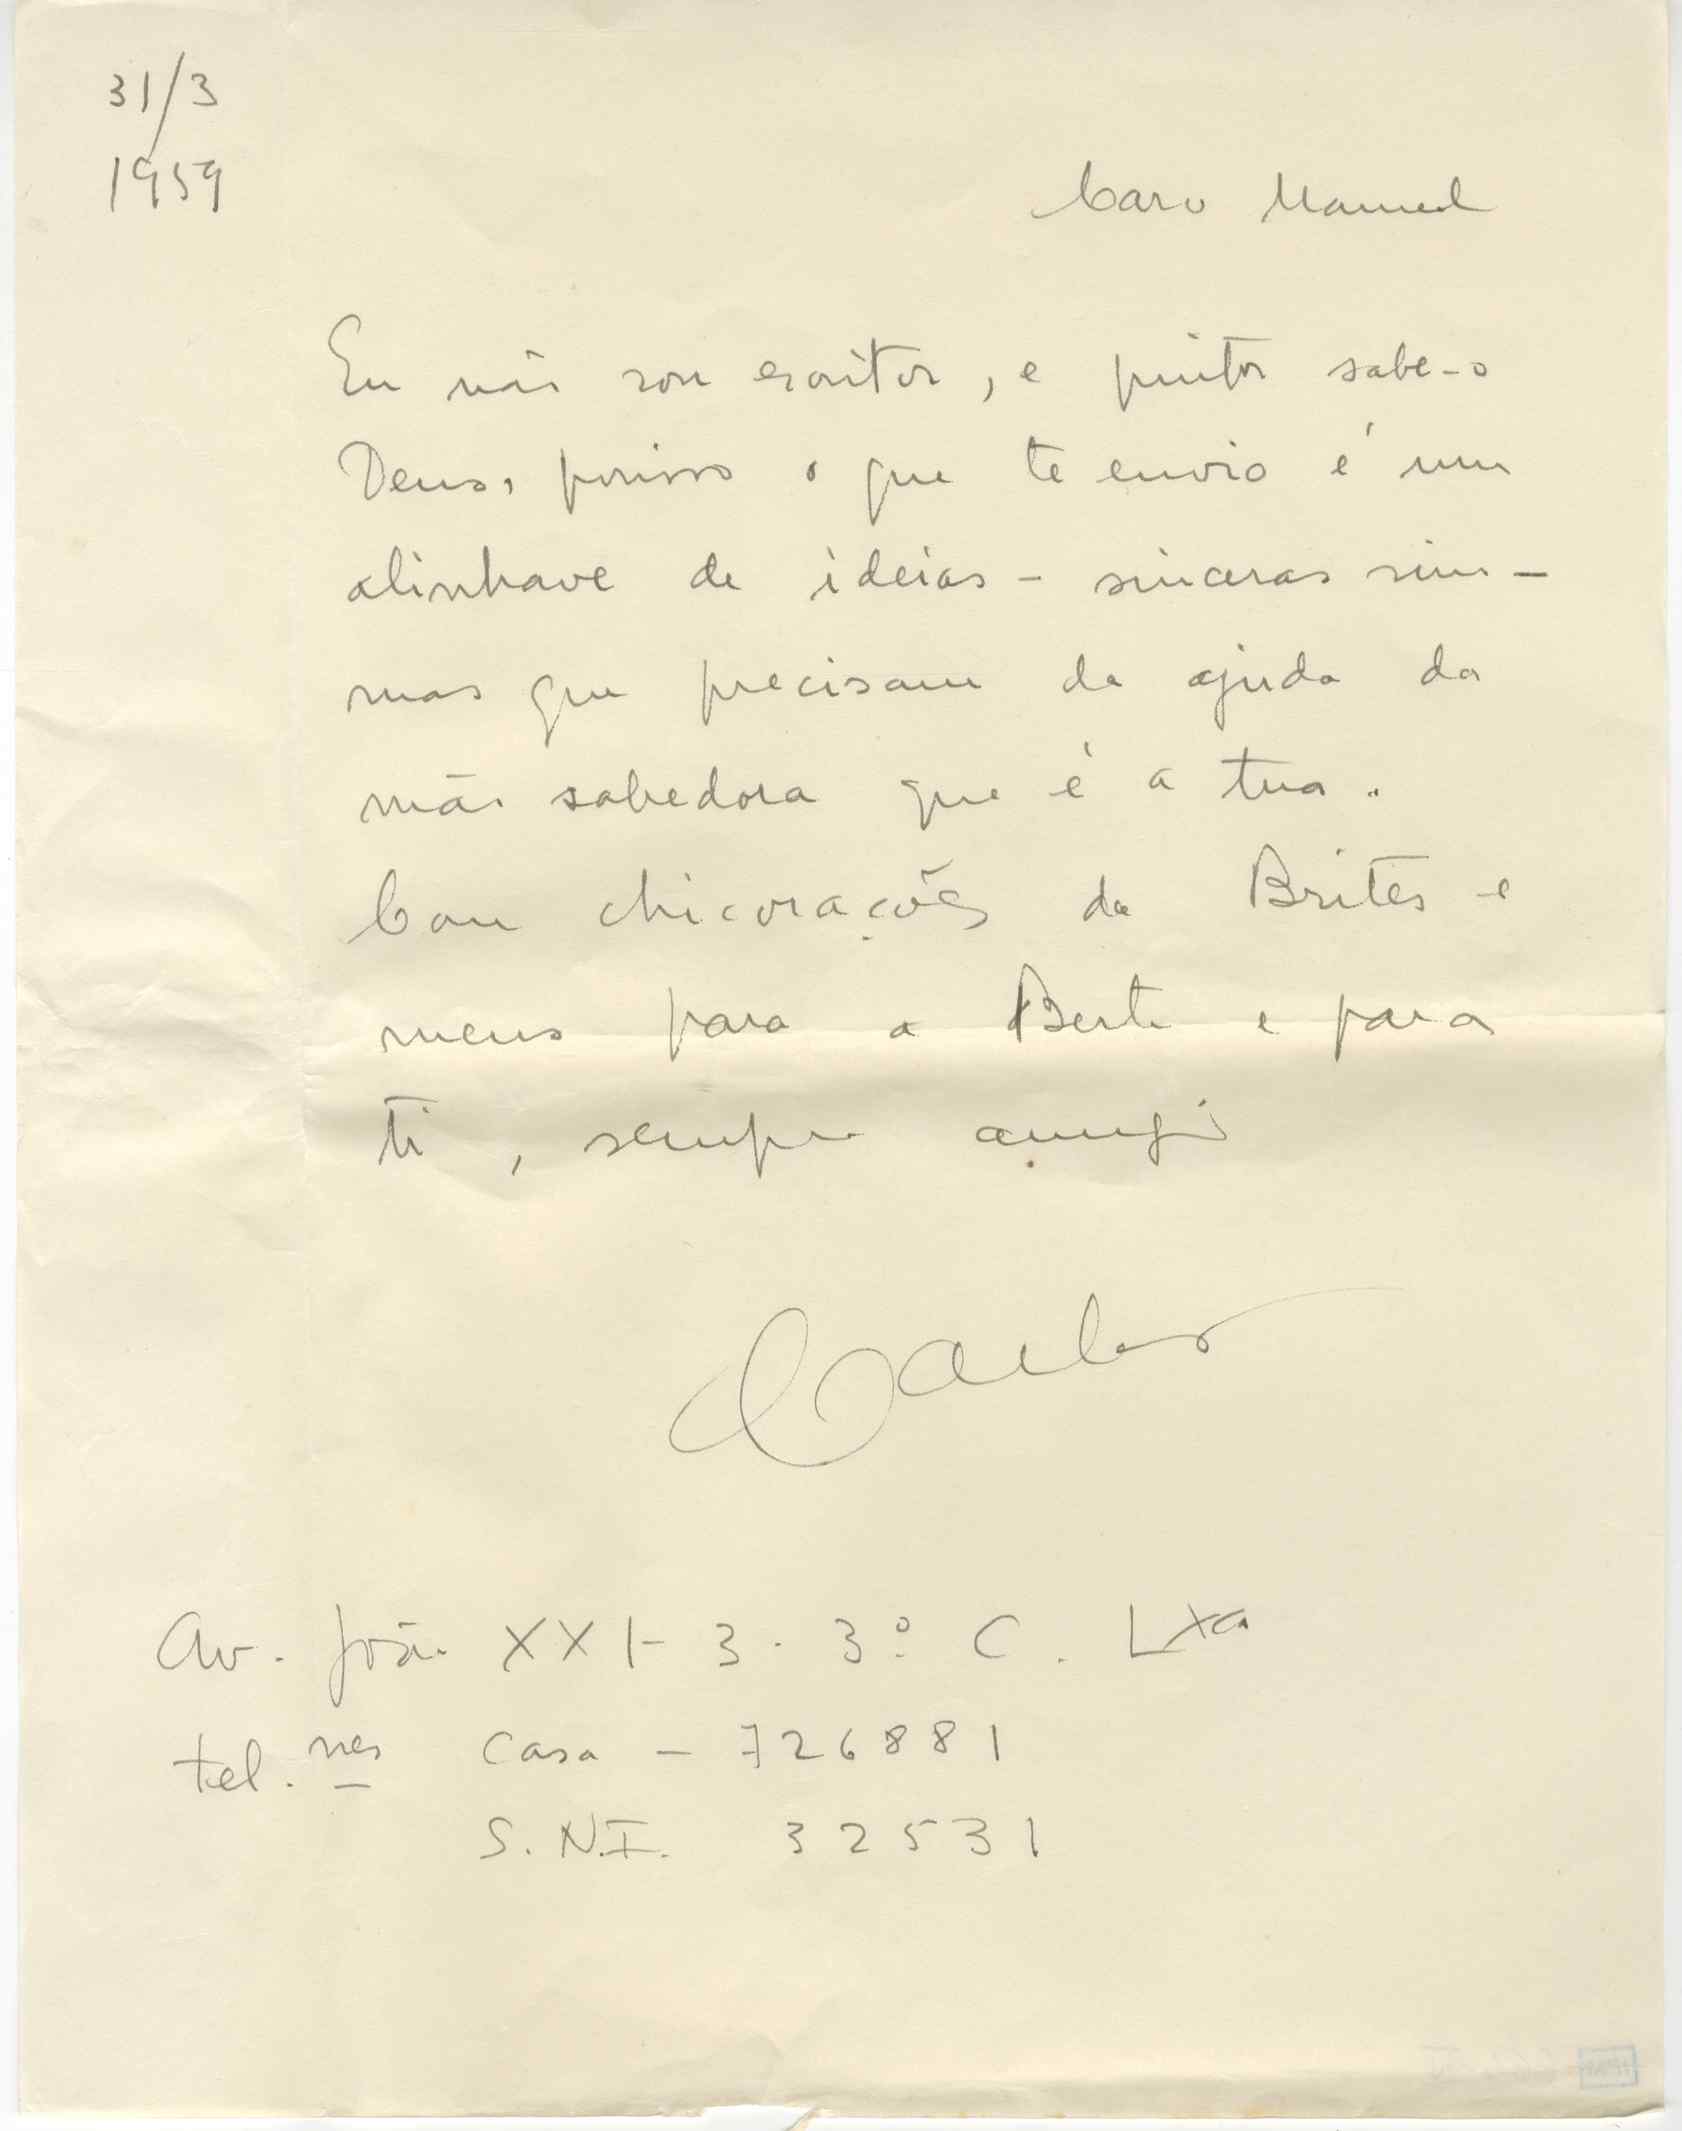 31/3
1959
Caro Manuel
Eu não sou escritor, e pintor sabe-o
Deus, porisso o que te envio é um
alinhave de ideias - sinceras sim -
mas que precisam da ajuda da
mão sabedora que é a tua.
Com chicorações da Brites e
meus para a Berta e para
ti, sempre amigo
Carlos
Av. João XXI - 3 - 3º C. Lxa
tel. nes casa - 726881
S.N.I. 32531